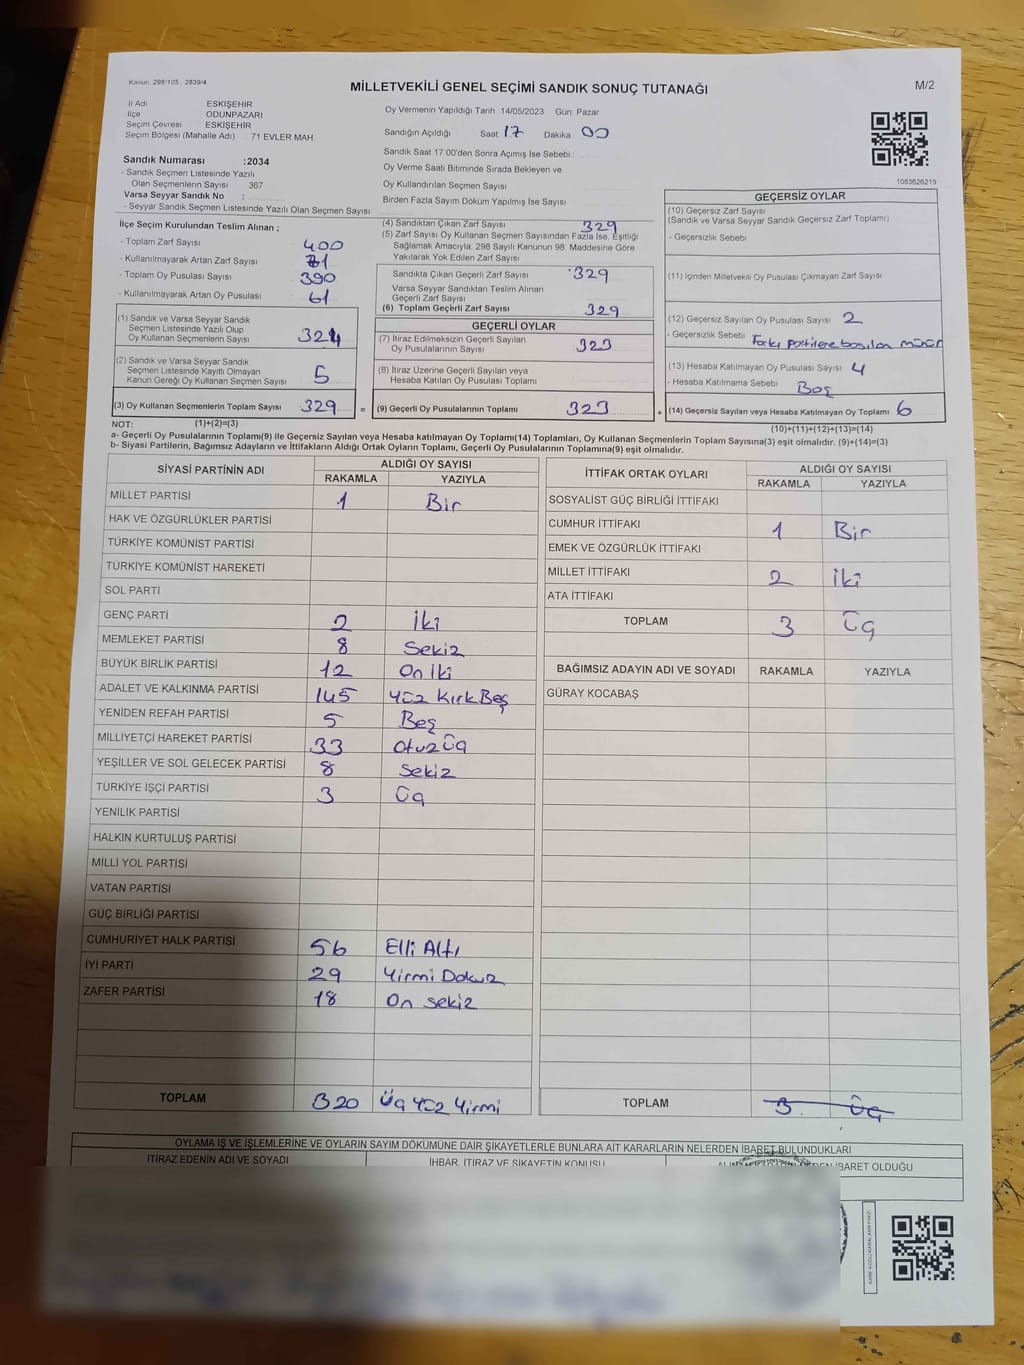 Kanun: 298/105, 2839/4
MİLLETVEKİLİ GENEL SEÇİMİ SANDIK SONUÇ TUTANAĞI
M/2
İl Adı ESKİŞEHİR
İlçe ODUNPAZARI
Seçim Çevresi ESKİŞEHİR
Seçim Bölgesi (Mahalle Adı) 71 EVLER MAH.
Sandık Numarası :2034
- Sandık Seçmen Listesinde Yazılı
Olan Seçmenlerin Sayısı 367
Varsa Seyyar Sandık No :
- Seyyar Sandık Seçmen Listesinde Yazılı Olan Seçmen Sayısı
Oy Vermenin Yapıldığı Tarih :14/05/2023 Gün: Pazar
Sandığın Açıldığı Saat 17 Dakika 00
Sandık Saat 17:00'den Sonra Açımış İse Sebebi :
Oy Verme Saati Bitiminde Sırada Bekleyen ve
Oy Kullandırılan Seçmen Sayısı
Birden Fazla Sayım Döküm Yapılmış İse Sayısı
1083626219
İlçe Seçim Kurulundan Teslim Alınan ;
- Toplam Zarf Sayısı 400
- Kullanılmayarak Artan Zarf Sayısı 71
- Toplam Oy Pusulası Sayısı 390
- Kullanılmayarak Artan Oy Pusulası 61
(1) Sandık ve Varsa Seyyar Sandık
Seçmen Listesinde Yazılı Olup
Oy Kullanan Seçmenlerin Sayısı 324
(2) Sandık ve Varsa Seyyar Sandık
Seçmen Listesinde Kayıtlı Olmayan
Kanun Gereği Oy Kullanan Seçmen Sayısı 5
(3) Oy Kullanan Seçmenlerin Toplam Sayısı 329
(4) Sandıktan Çıkan Zarf Sayısı 329
(5) Zarf Sayısı Oy Kullanan Seçmen Sayısından Fazla İse, Eşitliği
Sağlamak Amacıyla, 298 Sayılı Kanunun 98. Maddesine Göre
Yakılarak Yok Edilen Zarf Sayısı
Sandıkta Çıkan Geçerli Zarf Sayısı 329
Varsa Seyyar Sandıktan Teslim Alınan
Geçerli Zarf Sayısı
(6) Toplam Geçerli Zarf Sayısı 329
GEÇERLİ OYLAR
(7) İtiraz Edilmeksizin Geçerli Sayılan
Oy Pusulalarının Sayısı 323
(8) İtiraz Üzerine Geçerli Sayılan veya
Hesaba Katılan Oy Pusulası Toplamı
= (9) Geçerli Oy Pusulalarının Toplamı 323 +
GEÇERSİZ OYLAR
(10) Geçersiz Zarf Sayısı
(Sandık ve Varsa Seyyar Sandık Geçersiz Zarf Toplamı)
- Geçersizlik Sebebi
(11) İçinden Milletvekili Oy Pusulası Çıkmayan Zarf Sayısı
(12) Geçersiz Sayılan Oy Pusulası Sayısı 2
- Geçersizlik Sebebi
(13) Hesaba Katılmayan Oy Pusulası Sayısı 4
- Hesaba Katılmama Sebebi Boş
(14) Geçersiz Sayılan veya Hesaba Katılmayan Oy Toplamı 6
NOT: (1)+(2)=(3) (10)+(11)+(12)+(13)=(14)
a- Geçerli Oy Pusulalarının Toplamı(9) ile Geçersiz Sayılan veya Hesaba katılmayan Oy Toplamı(14) Toplamları, Oy Kullanan Seçmenlerin Toplam Sayısına(3) eşit olmalıdır. (9)+(14)=(3)
b- Siyasi Partilerin, Bağımsız Adayların ve İttifakların Aldığı Ortak Oyların Toplamı, Geçerli Oy Pusulalarının Toplamına(9) eşit olmalıdır.
SİYASİ PARTİNİN ADI ALDIĞI OY SAYISI
RAKAMLA YAZIYLA
MİLLET PARTİSİ 1 Bir
HAK VE ÖZGÜRLÜKLER PARTİSİ
TÜRKİYE KOMÜNİST PARTİSİ
TÜRKİYE KOMÜNİST HAREKETİ
SOL PARTİ
GENÇ PARTİ 2 İki
MEMLEKET PARTİSİ 8 Sekiz
BÜYÜK BİRLİK PARTİSİ 12 On İki
ADALET VE KALKINMA PARTİSİ 145 Yüz Kırk Beş
YENİDEN REFAH PARTİSİ 5 Beş
MİLLİYETÇİ HAREKET PARTİSİ 33 Otuz Üç
YEŞİLLER VE SOL GELECEK PARTİSİ 8 Sekiz
TÜRKİYE İŞÇİ PARTİSİ 3 Üç
YENİLİK PARTİSİ
HALKIN KURTULUŞ PARTİSİ
MİLLİ YOL PARTİSİ
VATAN PARTİSİ
GÜÇ BİRLİĞİ PARTİSİ
CUMHURİYET HALK PARTİSİ 56 Elli Altı
İYİ PARTİ 29 Yirmi Dokuz
ZAFER PARTİSİ 18 On Sekiz
TOPLAM 320 Üç Yüz Yirmi
İTTİFAK ORTAK OYLARI ALDIĞI OY SAYISI
RAKAMLA YAZIYLA
SOSYALİST GÜÇ BİRLİĞİ İTTİFAKI
CUMHUR İTTİFAKI 1 Bir
EMEK VE ÖZGÜRLÜK İTTİFAKI
MİLLET İTTİFAKI 2 İki
ATA İTTİFAKI
TOPLAM 3 Üç
BAĞIMSIZ ADAYIN ADI VE SOYADI RAKAMLA YAZIYLA
GÜRAY KOCABAŞ
TOPLAM 3 Üç
OYLAMA İŞ VE İŞLEMLERİNE VE OYLARIN SAYIM DÖKÜMÜNE DAİR ŞİKAYETLERLE BUNLARA AİT KARARLARIN NELERDEN İBARET BULUNDUKLARI
İTİRAZ EDENİN ADI VE SOYADI İHBAR, İTİRAZ VE ŞİKAYETİN KONUSU İBARET OLDUĞU